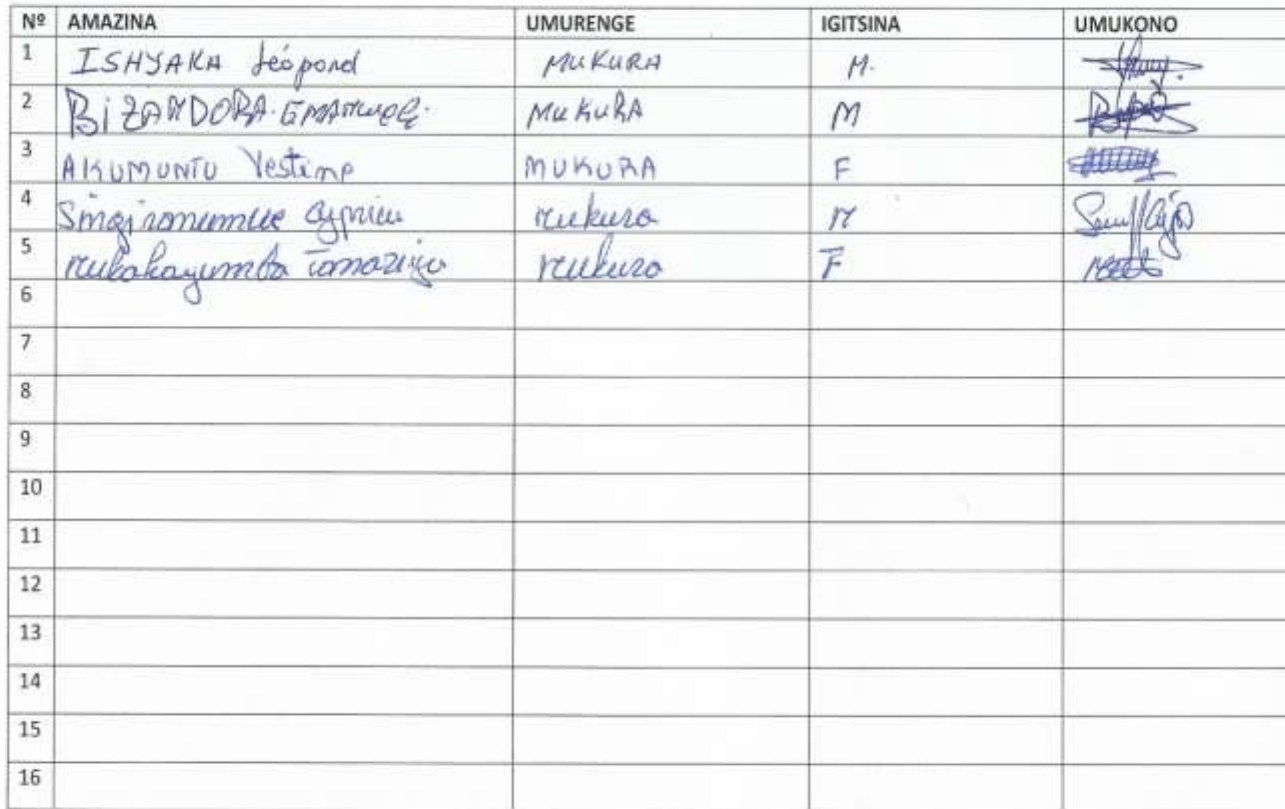 Nº AMAZINA UMURENGE IGITSINA UMUKONO
1 ISHYAKA Léopord MUKURA M.
2 BIZANDORA Emanuel MUKURA M
3 AKUMUNTU Vestine MUKURA F
4 cyprien mukura M
5 mukakayumba mukura F
6
7
8
9
10
11
12
13
14
15
16